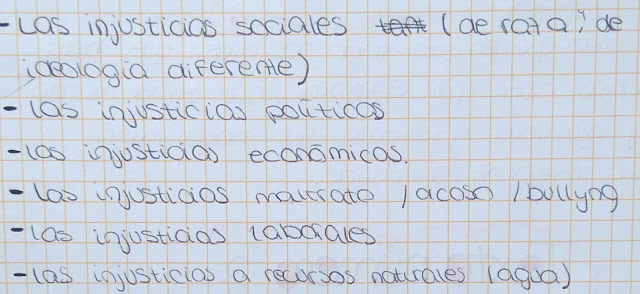 - Las injusticias sociales (de raza, de
ideologia diferente)
- las injusticias políticas
- las injusticias económicas.
- las injusticias maltrato / acoso / bullyng
- las injusticias laborales
- las injusticias a recursos naturales (agua)